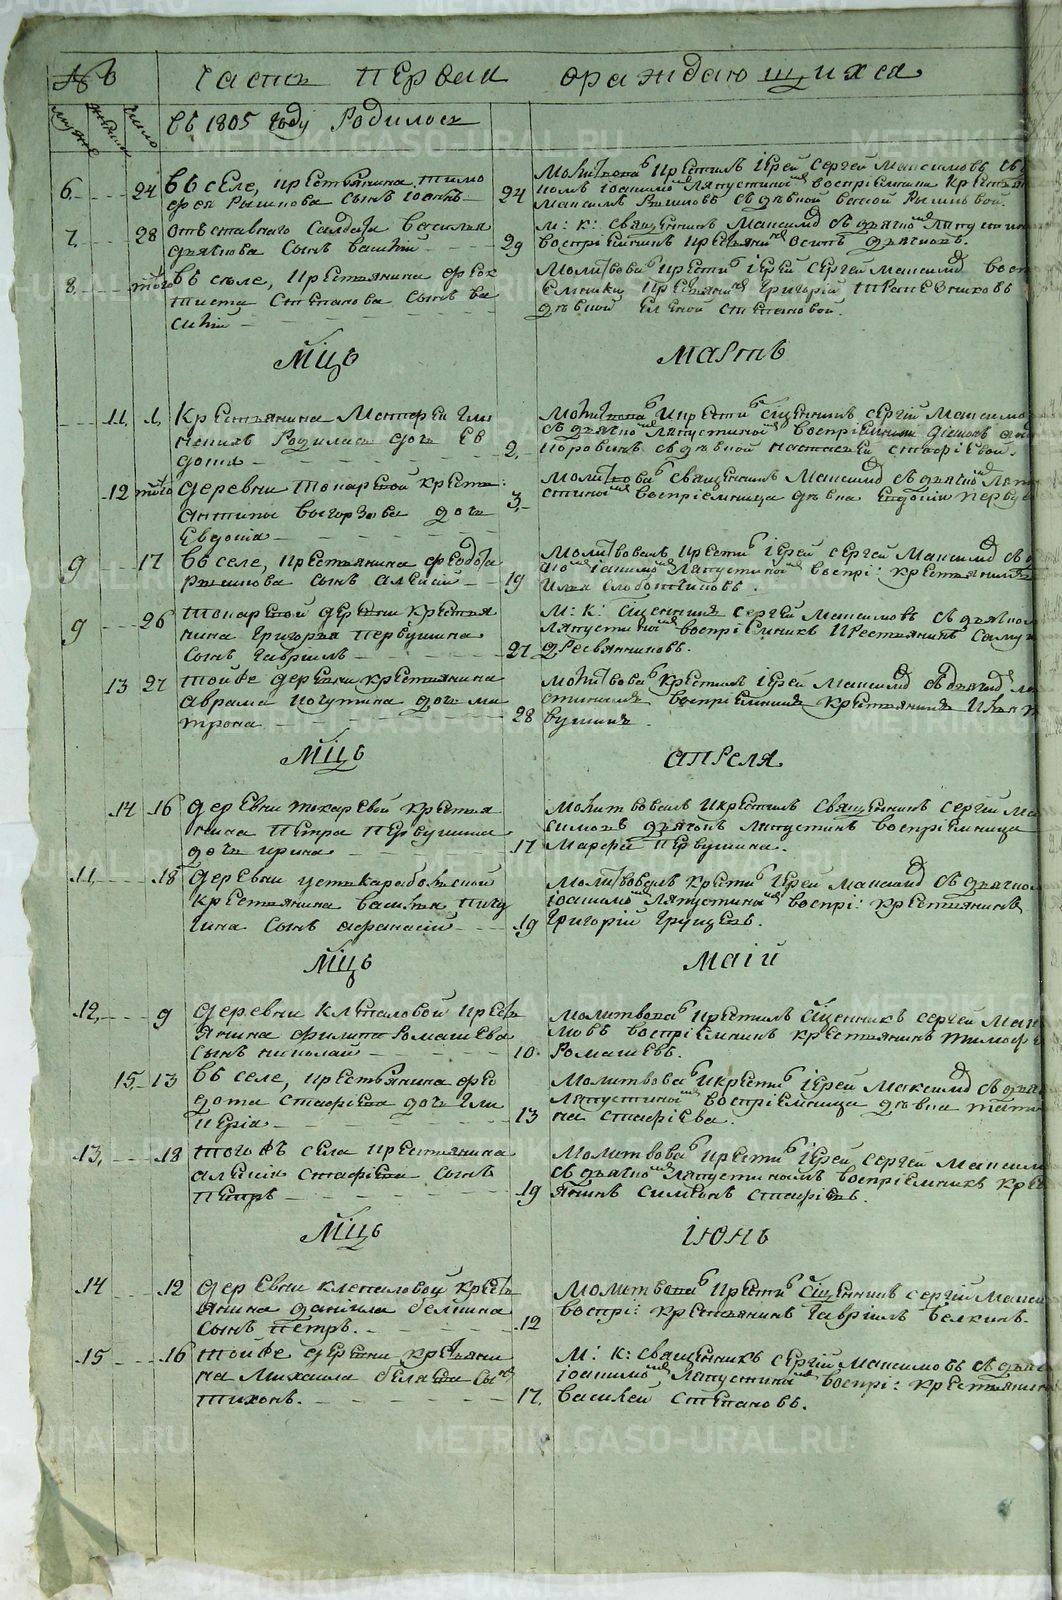 № Часть Первая ораждающихся
мужеска женска число Въ 1805 году Родилось
6. 24 Въ селе, крестьянина Тимо
фея Рылнова сынъ Iоаннъ 24
Молитвова Крестилъ Iерей Сергей Максимовъ съ
Iоанномъ Ляпустинымъ воспрiемники крестья
Максимъ съ девкой
7. 28 Отставного Салдата Василья
Дьяткова сынъ Василiй 29
М: К: Священникъ Максимо съ дьячкомъ Ляпустин
воспрiемникъ крестьянинъ Осипъ Дьячковъ.
8. того Въ селе, крестьянина Феок
тиста Степанова сынъ Ва
силiй
Молитвова крести Iерей Сергей Максимо восп
емники крестьянинъ Григорiй
девкой Еленой Степановой.
Мцъ Мартъ
11. 1. Крестьянина
Родилась дочь Ев
докiя 2.
Молитвова и крести Священникъ Сергiй Максимо
съ дьячкомъ Ляпустинымъ воспрiемники
съ девкой Настасьей Стафiевой.
12 того Деревни Токаревой крестья
Антипы дочь
Евдокiя 3.
Молитвова Священникъ Максимо съ дьячкомъ Ляпу
стинымъ воспрiемница девка Евдокiя Перву
9 17 Въ селе, крестьянина Феодота
Рылнова сынъ Алексiй 19
Молитвовалъ крести Iерей Сергей Максимо съ
Iоанномъ Ляпустинымъ воспрi: крестьянинъ
Илья Слободчиковъ.
9 26 Токаревой деревни крестья
нина Григорья Первушина
сынъ Гаврiилъ 27
М: К: Священникъ Сергей Максимовъ съ дьячкомъ
Ляпустинымъ воспрiемникъ крестьянинъ Саму
Дресвянниковъ.
13 27 Тойже деревни крестьянина
Аврама Пичугина дочь Ма
трона 28
Молитвова крестилъ Iерей Максимо съ дьячкомъ Ля
стинымъ воспрiемникъ крестьянинъ Илья П
вушинъ.
Мцъ Апреля
14 16 Деревни Токаревой крестья
нина Петра Первушина
дочь Ирина 17
Молитвовалъ и крестилъ Священникъ Сергiй Ма
симовъ дьячокъ Ляпустинъ воспрiемница
Марфа Первушина.
11. 18 Деревни Устькараболской
крестьянина Василья Пичу
гина сынъ Афанасiй 19
Молитвовалъ крести Iерей Максимо съ дьячком
Iоанномъ Ляпустинымъ воспрi: крестьянинъ
Григорiй Грунцевъ.
Мцъ Маiй
12. 9 Деревни Клепаловой крест
янина Филипа Ромашева
сынъ Николай 10.
Молитвова крестилъ Священникъ Сергей Мак
мовъ воспрiемникъ крестьянинъ Тимоф
Ромашевъ.
15 13 Въ селе, крестьянина Фео
дота Стафiева дочь Гли
керiя 13
Молитвова и крести Iерей Максимо съ дьяч
Ляпустинымъ воспрiемница девка Тать
на Стафiева.
13. 18 Тогожъ села крестьянина
Алексiя Стафiева сынъ
Петръ 19
Молитвова крести Iерей Сергей Максим
съ дьячкомъ Ляпустинымъ воспрiемникъ кре
янинъ Симеонъ Стафiевъ.
Мцъ Iюнь
14 12 Деревни Клепаловой крест
янина Данiила Белкина
сынъ Петръ. 12
Молитвова крести Священникъ Сергiй Макси
воспрi: крестьянинъ Гаврiилъ Белкинъ.
15 16 Тойже деревни крестьяни
на Михаила сынъ
Тихонъ. 17.
М: К: Священникъ Сергiй Максимовъ съ дьяч
Iоанномъ Ляпустинымъ воспрi: крестьянин
Василей Степановъ.